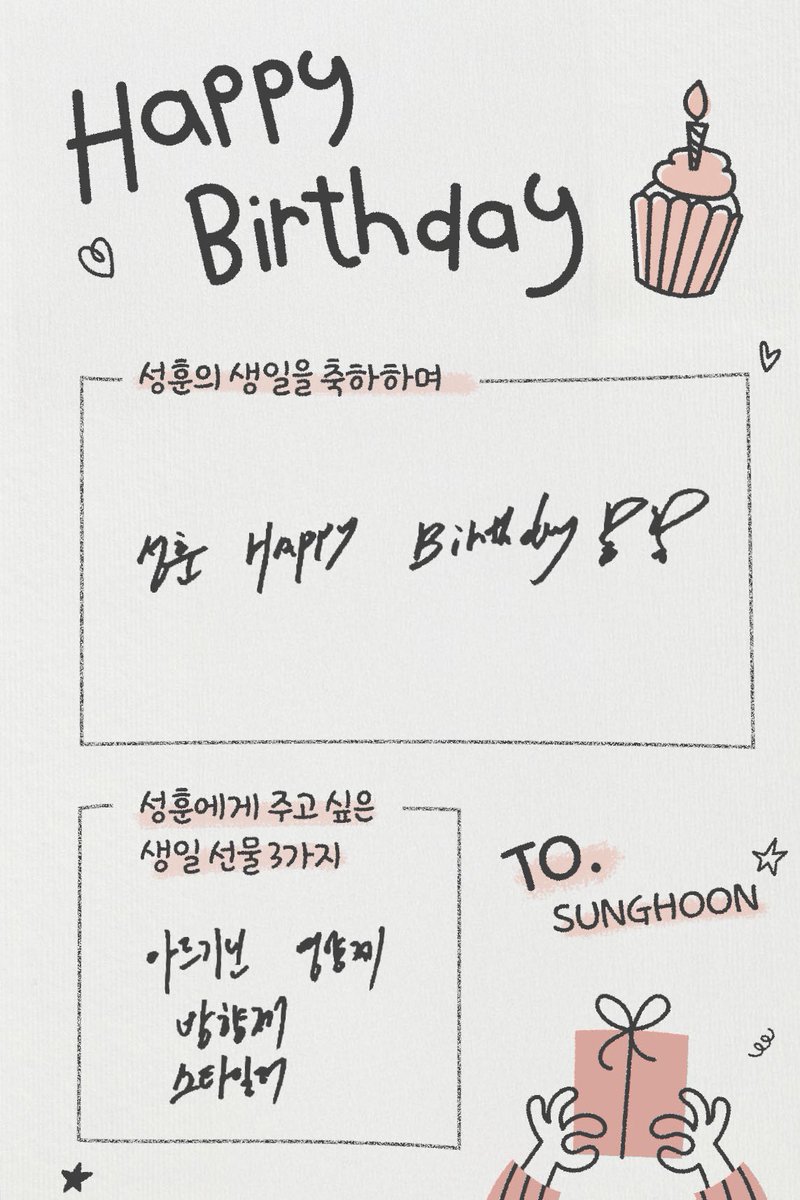 Happy
Birthday
성훈의 생일을 축하하며
성훈 Happy Birthday !!
성훈에게 주고 싶은
생일 선물 3가지
아르기닌 영양제
방향제
스타일러
TO.
SUNGHOON